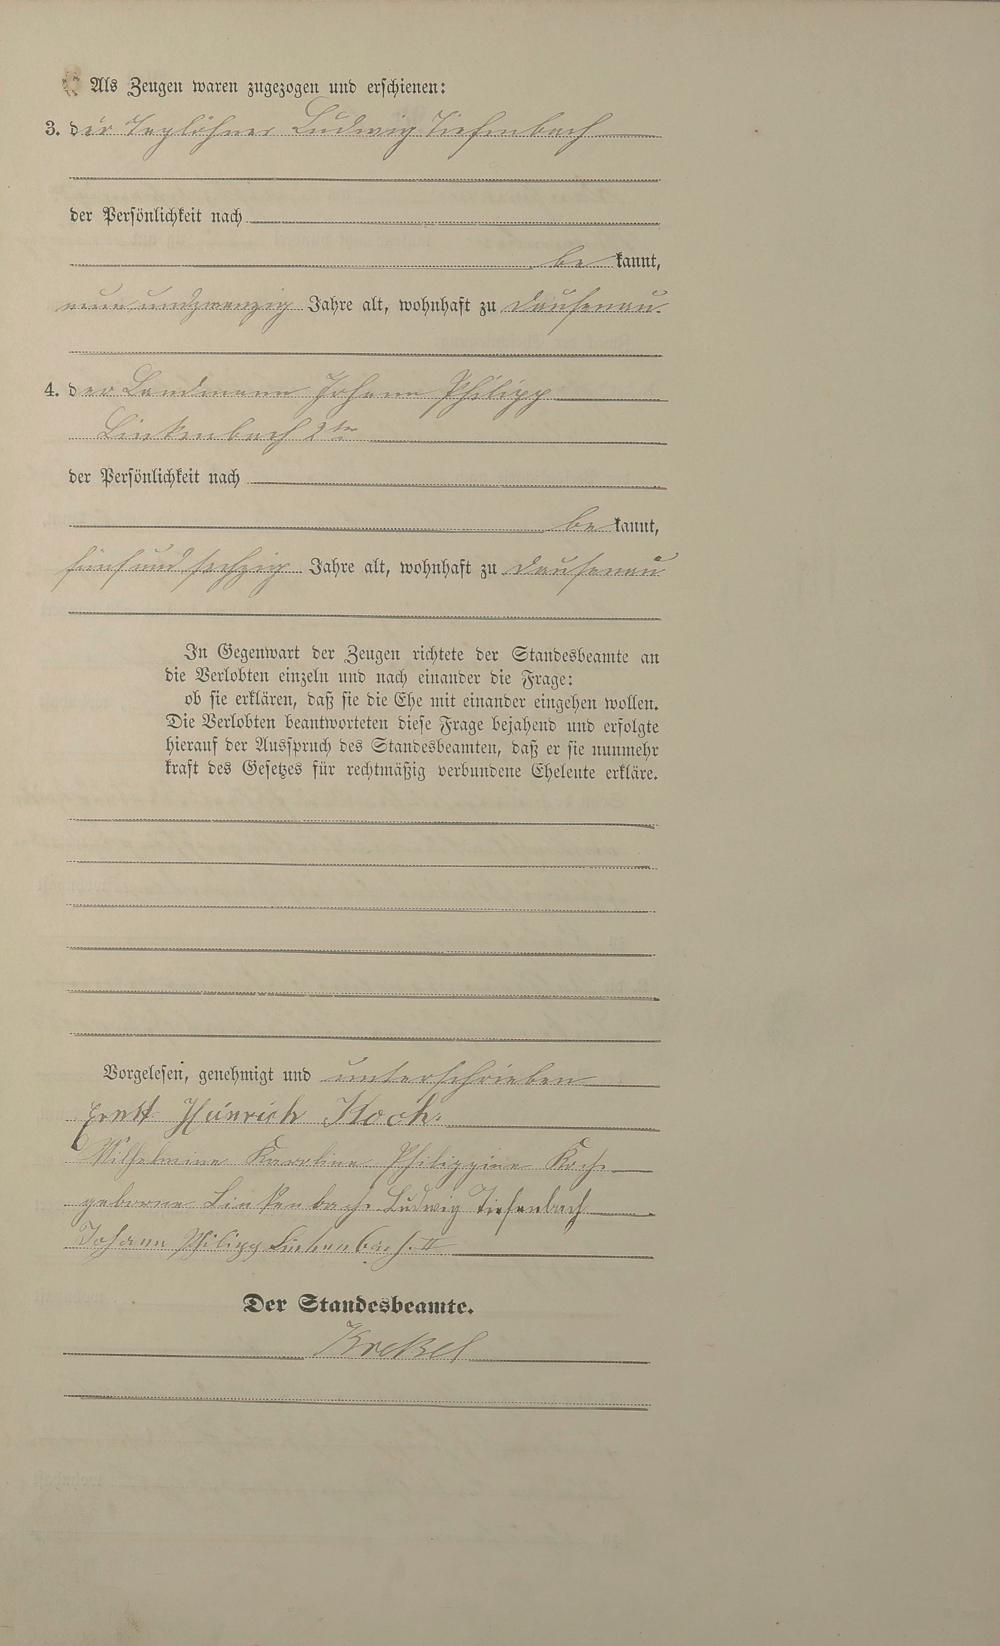 Als Zeugen waren zugezogen und erschienen:
3. der Taglöhner Ludwig Tiefenbach
der Persönlichkeit nach
be kannt,
neun undzwanzig Jahre alt, wohnhaft zu Dausenau
4. der Landmann Johann Philipp
Linkenbach 2ter
der Persönlichkeit nach
be kannt,
fünf und sechzig Jahre alt, wohnhaft zu Dausenau
In Gegenwart der Zeugen richtete der Standesbeamte an
die Verlobten einzeln und nach einander die Frage:
ob sie erklären, daß sie die Ehe mit einander eingehen wollen.
Die Verlobten beantworteten diese Frage bejahend und erfolgte
hierauf der Ausspruch des Standesbeamten, daß er sie nunmehr
kraft des Gesetzes für rechtmäßig verbundene Eheleute erkläre.
Vorgelesen, genehmigt und unterschrieben
Ernst Heinrich Koch.
Wilhelmine Karoline Philippine Koch
geborne Linkenbach. Ludwig Tiefenbach
Johann Philipp Linkenbach. II
Der Standesbeamte.
Krekel